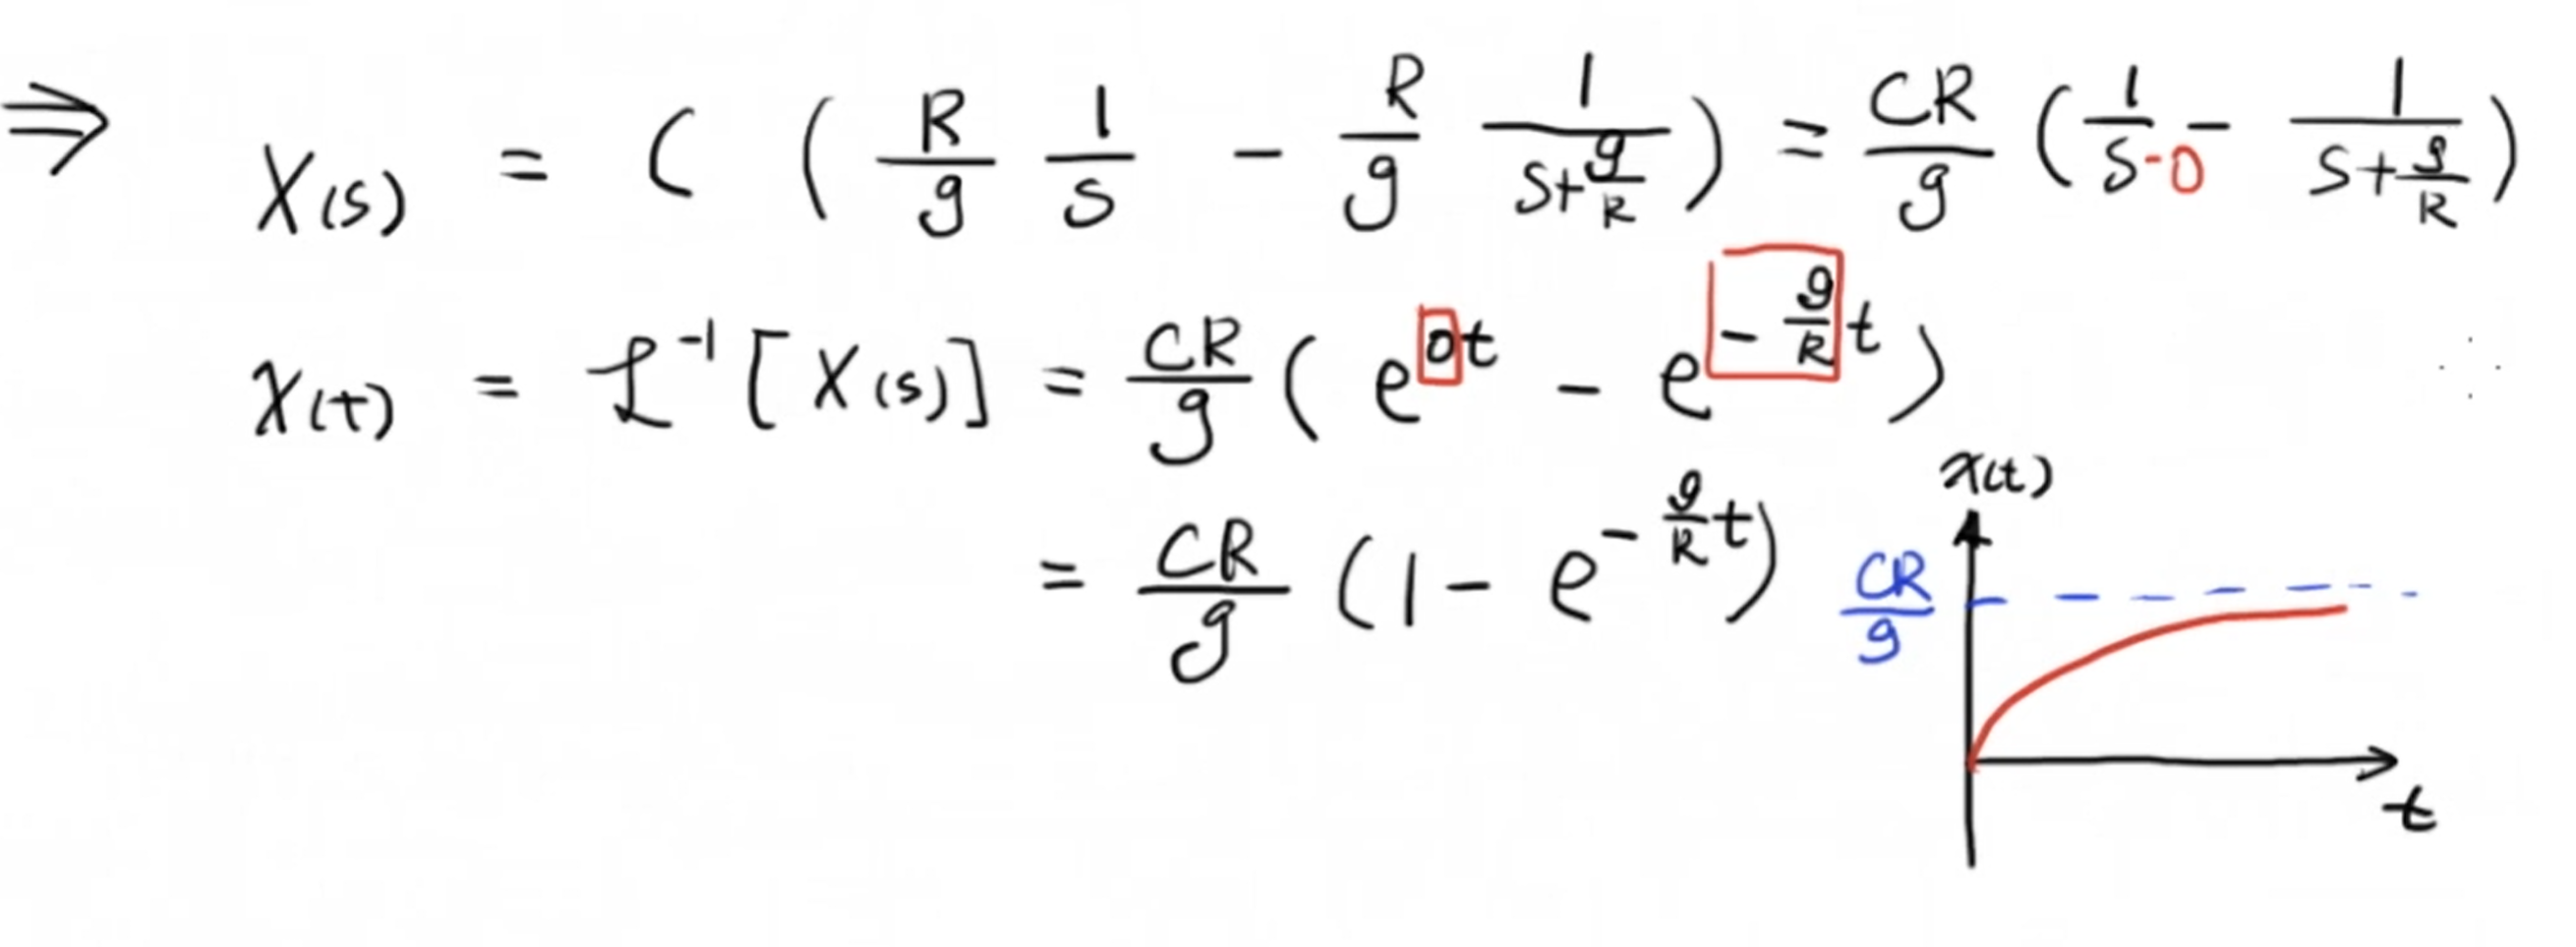 ⇒ X(s) = C ( R/g 1/s - R/g 1/(s+g/R) ) = CR/g ( 1/(s-0) - 1/(s+g/R) )
x(t) = ℒ⁻¹ [ X(s) ] = CR/g ( e^(0t) - e^(-g/R t) )
= CR/g ( 1 - e^(-g/R t) )
x(t)
CR/g
t